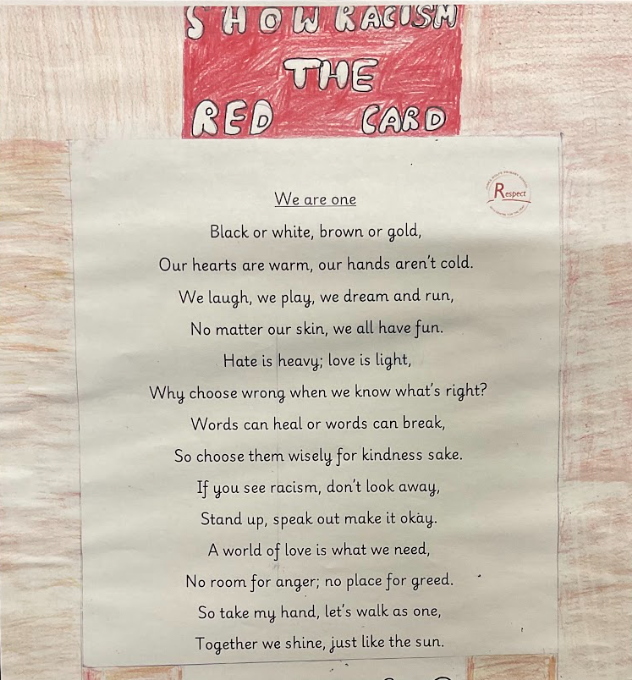 SHOW RACISM
THE
RED CARD
We are one
Respect
Black or white, brown or gold,
Our hearts are warm, our hands aren't cold.
We laugh, we play, we dream and run,
No matter our skin, we all have fun.
Hate is heavy; love is light,
Why choose wrong when we know what's right?
Words can heal or words can break,
So choose them wisely for kindness sake.
If you see racism, don't look away,
Stand up, speak out make it okay.
A world of love is what we need,
No room for anger; no place for greed.
So take my hand, let's walk as one,
Together we shine, just like the sun.